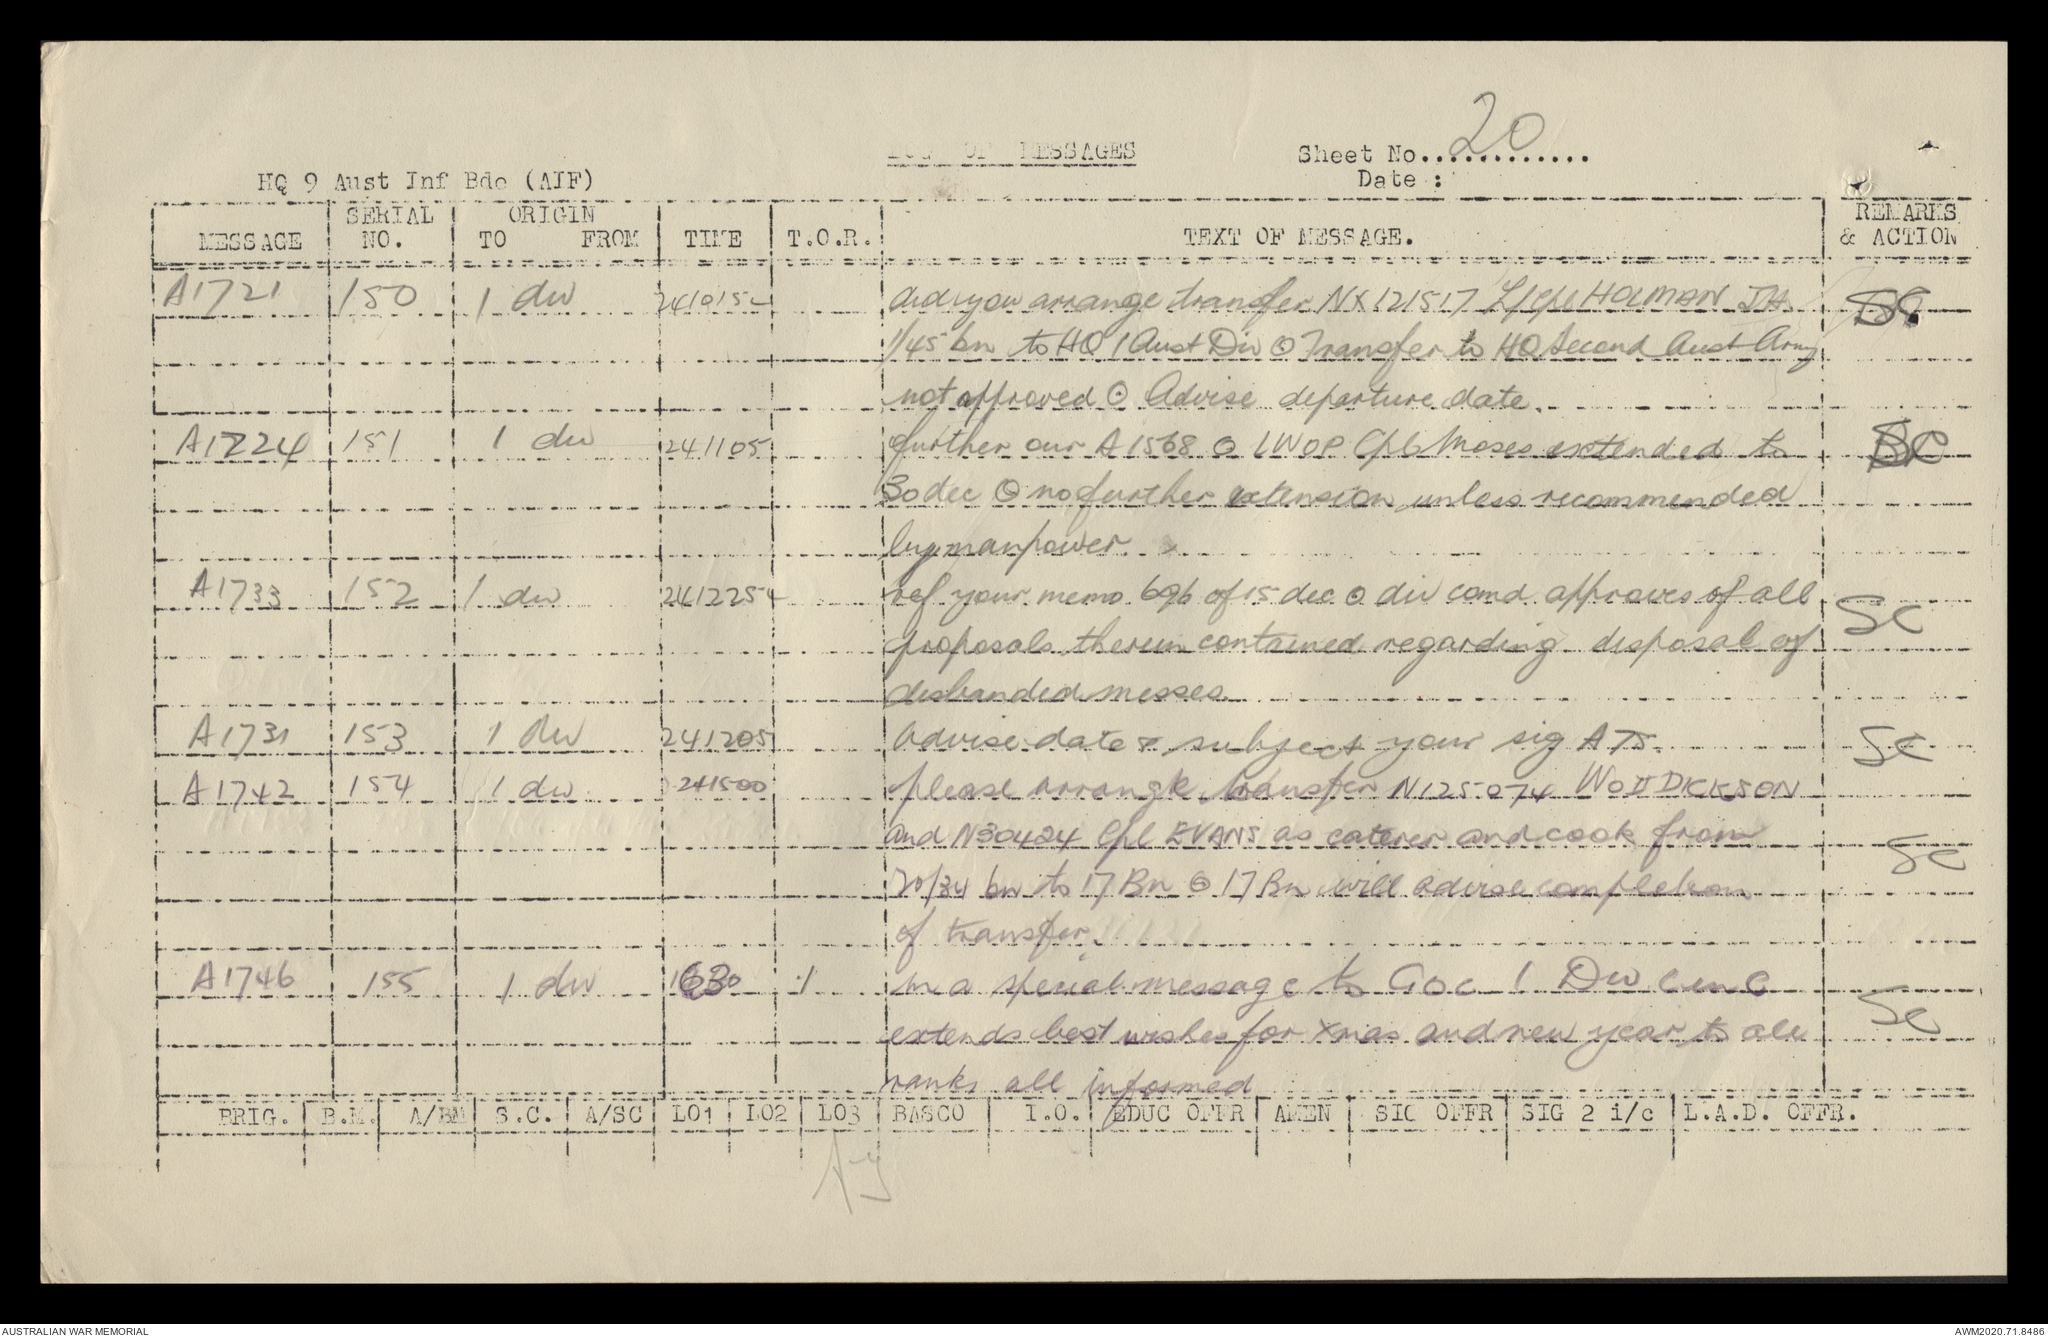 LOG OF MESSAGES
Sheet No............. 20
HQ 9 Aust Inf Bde (AIF)
Date :
MESSAGE SERIAL NO. ORIGIN TO FROM TIME T.O.R. TEXT OF MESSAGE. REMARKS & ACTION
A1721 150 1 div 241015 did you arrange transfer NX121517 L/Cpl HOLMAN J.A. SC
1/45 bn to HQ 1 Aust Div ⊙ Transfer to HQ Second Aust Army
not approved ⊙ Advise departure date.
A1724 151 1 div 241105 further our A1568 ⊙ LWOP Cpl Moses extended to SC
30 dec ⊙ no further extension unless recommended
by manpower
A1733 152 1 div 241225 ref your memo 696 of 15 dec ⊙ div comd approves of all SC
proposals therein contained regarding disposal of
disbanded messes
A1731 153 1 div 241205 Advise date & subject your sig A75. SC
A1742 154 1 div 241500 please arrange transfer N125074 WO II DICKSON
and N30424 Cpl EVANS as caterer and cook from SC
20/34 bn to 17 Bn ⊙ 17 Bn will advise completion
of transfer.
A1746 155 1 div 1630 1 In a special message to GOC 1 Div C in C SC
extends best wishes for Xmas and new year to all
ranks all informed
BRIG. B.M. A/BM S.C. A/SC LO1 LO2 LO3 BASCO I.O. EDUC OFFR AMEN SIG OFFR SIG 2 i/c L.A.D. OFFR.
AUSTRALIAN WAR MEMORIAL
AWM2020.71.8486